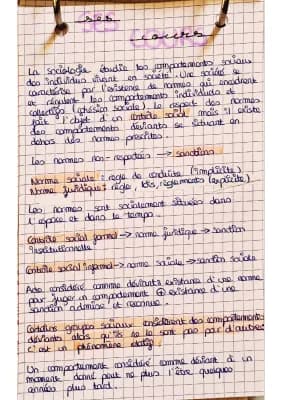 ses
cours
La sociologie étudie les comportements sociaux
des individus vivant en société. Une société se
caractérise par l'existence de normes qui encadrent
et régulent les comportements individuels et
collectifs (cohésion sociale). Le respect des normes
fait l'objet d'un contrôle social mais il existe
des comportements déviants se situant en
dehors des normes prescrites.
Les normes non-respectées → sanctions
Norme sociale : règle de conduite (implicite)
Norme juridique : règle, lois, règlements (explicite)
Les normes sont socialement situées dans
l'espace et dans le temps.
Contrôle social formel → norme juridique → sanction
institutionnelle
Contrôle social informel → norme sociale → sanction sociale
Acte considéré comme déviant : existence d'une norme
pour juger un comportement ⊕ existence d'une
sanction admise et reconnue.
Certains groupes sociaux considèrent des comportements
déviants alors qu'ils ne le sont pas par d'autres
c'est un phénomène
Un comportement considéré comme déviant à un
moment donné peut ne plus l'être quelques
années plus tard.